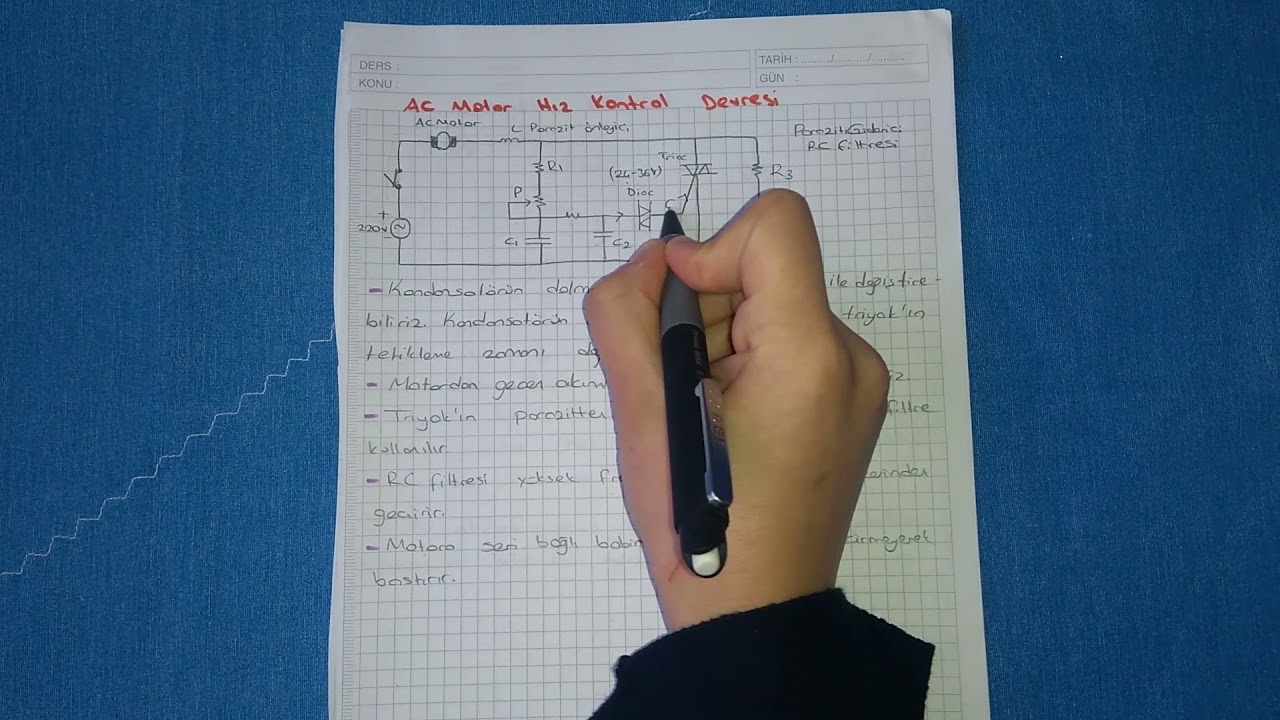 DERS :
KONU :
TARİH : ........./........../...........
GÜN :
AC Motor Hız Kontrol Devresi
AC Motor
L Parazit önleyici
Parazit Giderici
RC filtresi
Triac
(24-36V)
Diac
R1
R3
P
G
+
220V
C1
C2
- Kondansatörün ile değiştire-
biliriz. Kondansatörün triyak'ın
tetikleme zamanı
- Motordan geçen akım
- Triyak'ın filtre
kullanılır
- RC filtresi yüksek üzerinden
geçirir.
- Motora seri bağlı bobin
bastırır.